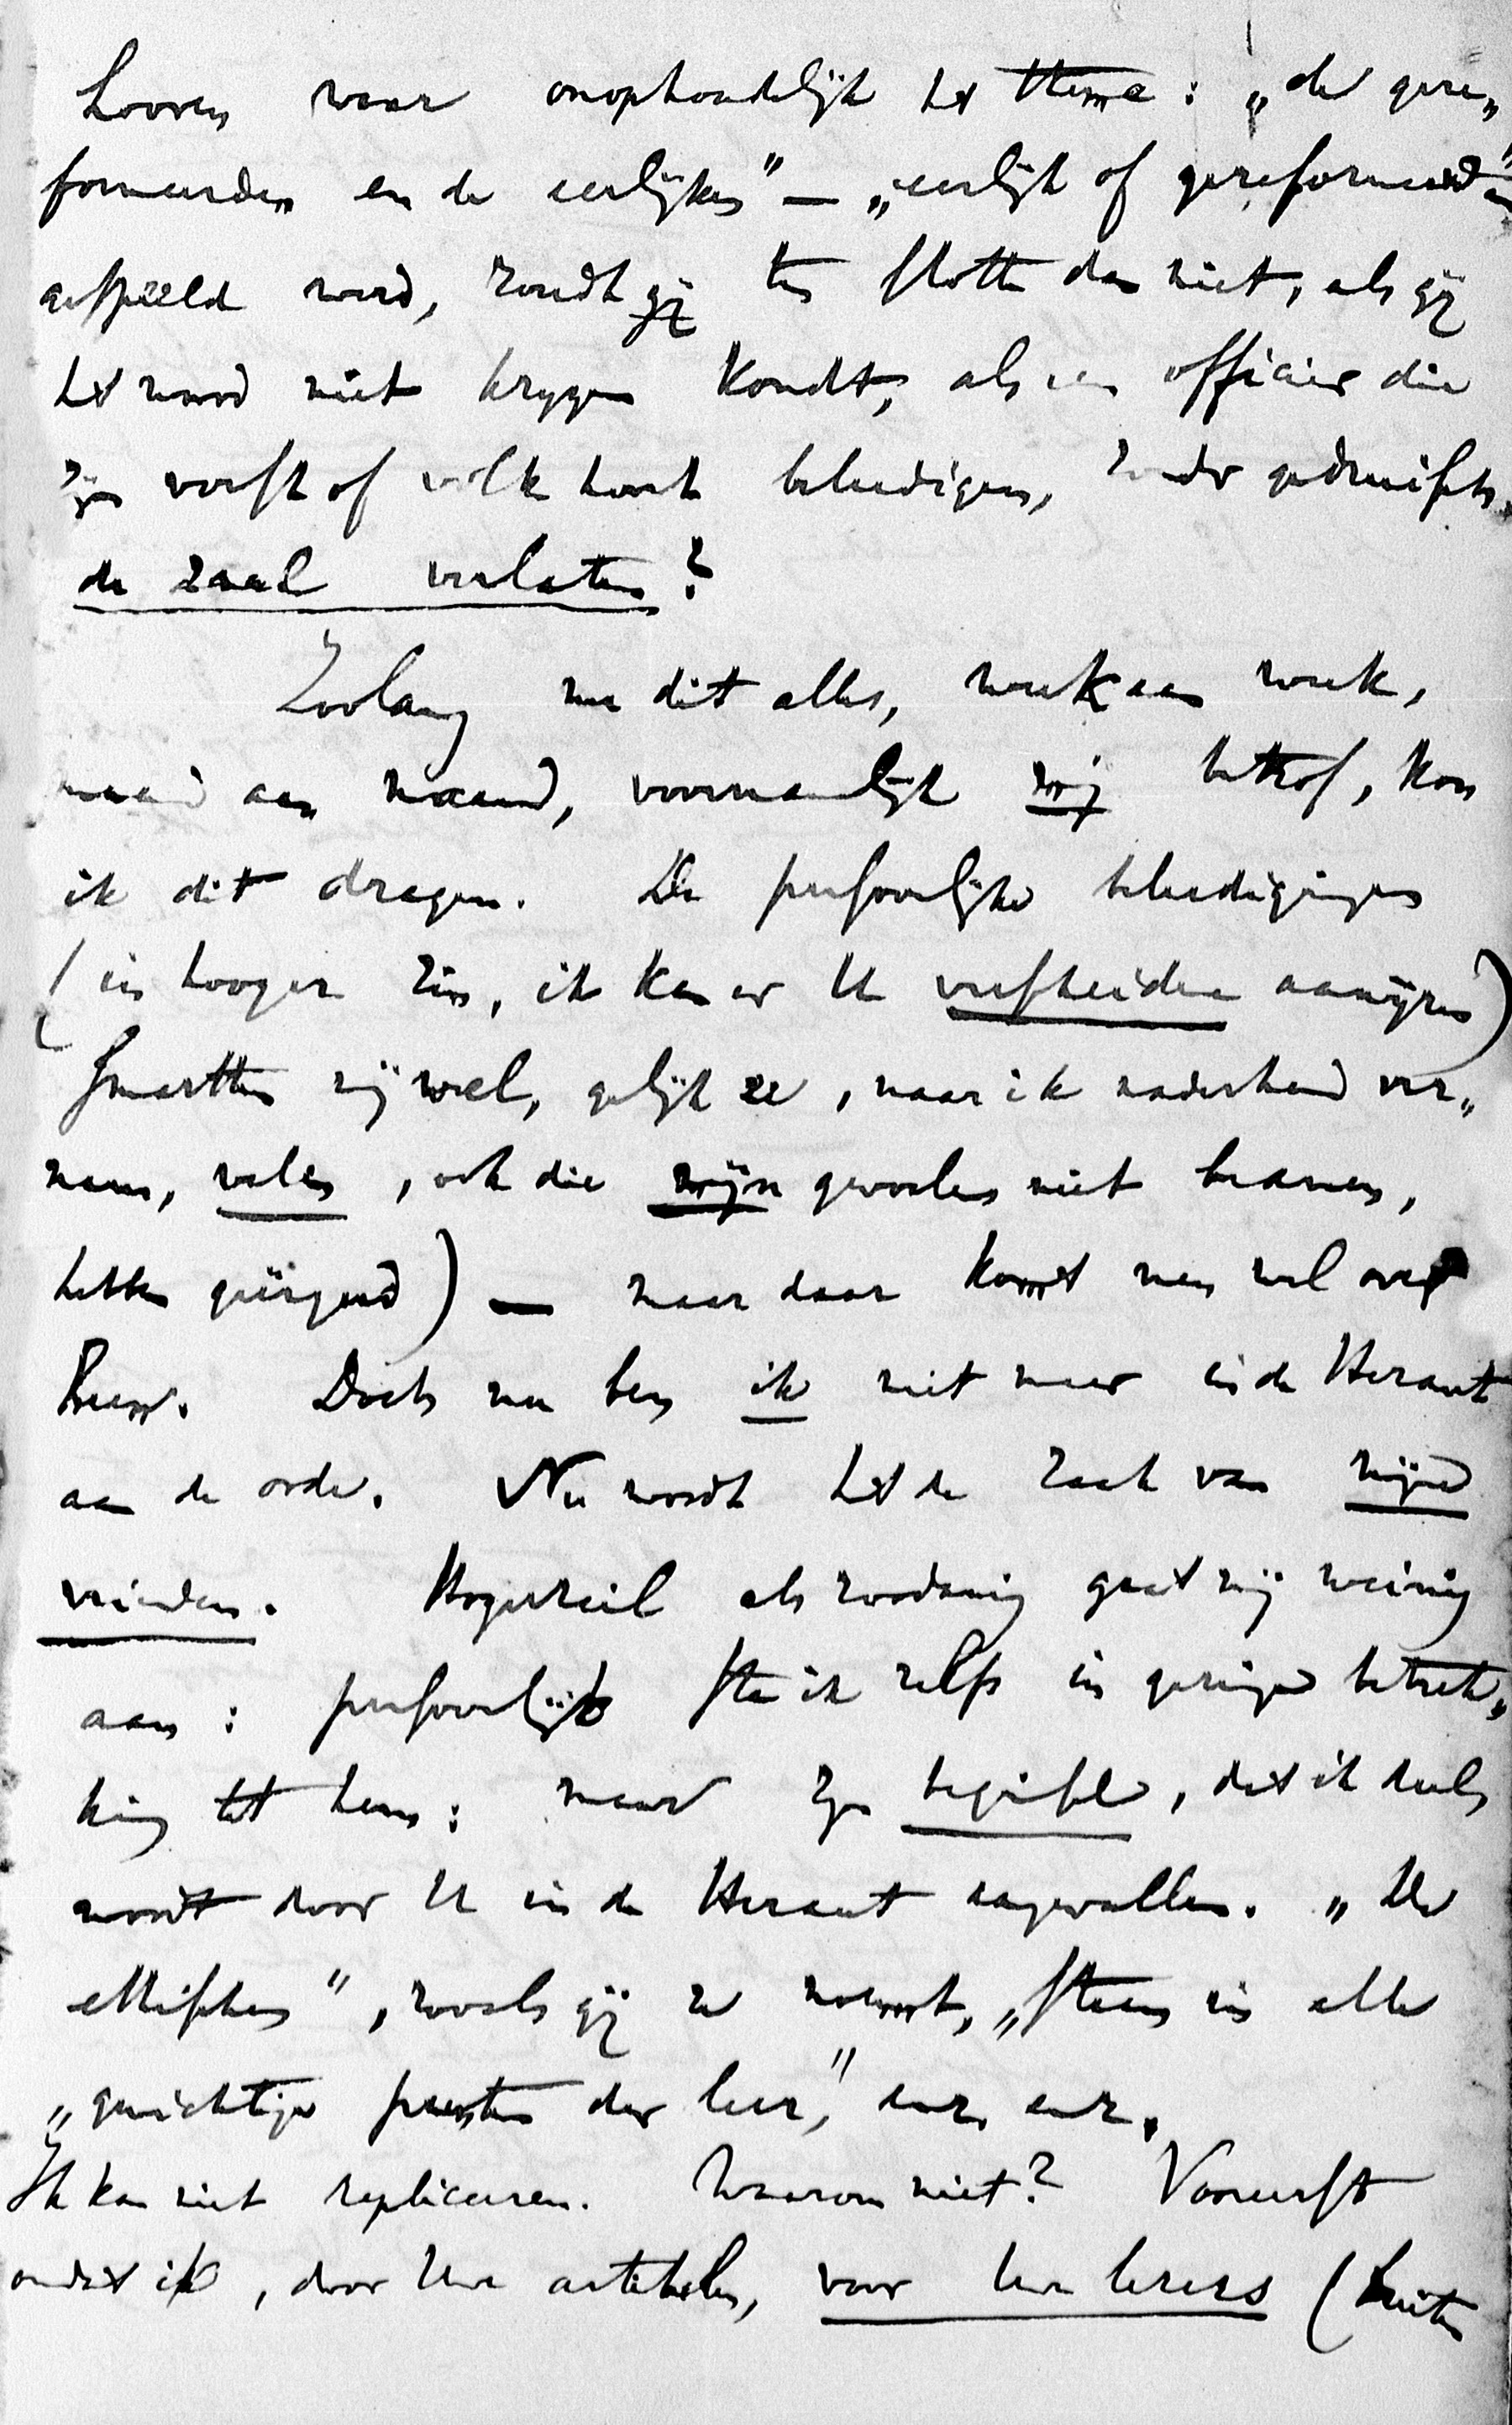 hooren waar onophoudelijk het thema: „de gere„
formeerden en de eerlijken” — „eerlijk of gereformeerd”
gespeeld werd, zoudt gij ten slotte dan niet, als gij
het woord niet krijgen kondt, als een officier die
zijn vorst of volk hoort beleedigen, zonder gedruisch,
de zaal verlaten?
Zoolang nu dit alles, week aan week,
maand aan maand, voornamelijk mij betrof, kon
ik dit dragen. De persoonlijke beleedigingen
(in hooger zin, ik kan er U verscheidene aanwijzen)
smartten mij wel, gelijk ze, naar ik naderhand ver„
nam, velen, ook die mijn gevoelen niet beamen,
hebben geërgerd) — maar daar komt men wel over
heen. Doch nu ben ik niet meer in de Heraut
aan de orde. Nu wordt het de zaak van mijne
vrienden. Hogerzeil als zoodanig gaat mij weinig
aan: persoonlijk sta ik zelfs in geringe betrek„
king tot hem: maar zijn beginsel, dat ik deel,
wordt door U in de Heraut aangevallen. „De
ethischen”, zooals gij ze noemt, „staan in alle
„gewichtige punten der leer,” enz. enz.
Ik kan niet repliceeren. Waarom niet? Vooreerst
omdat ik, door Uwe artikelen, voor Uw lezers (buiten